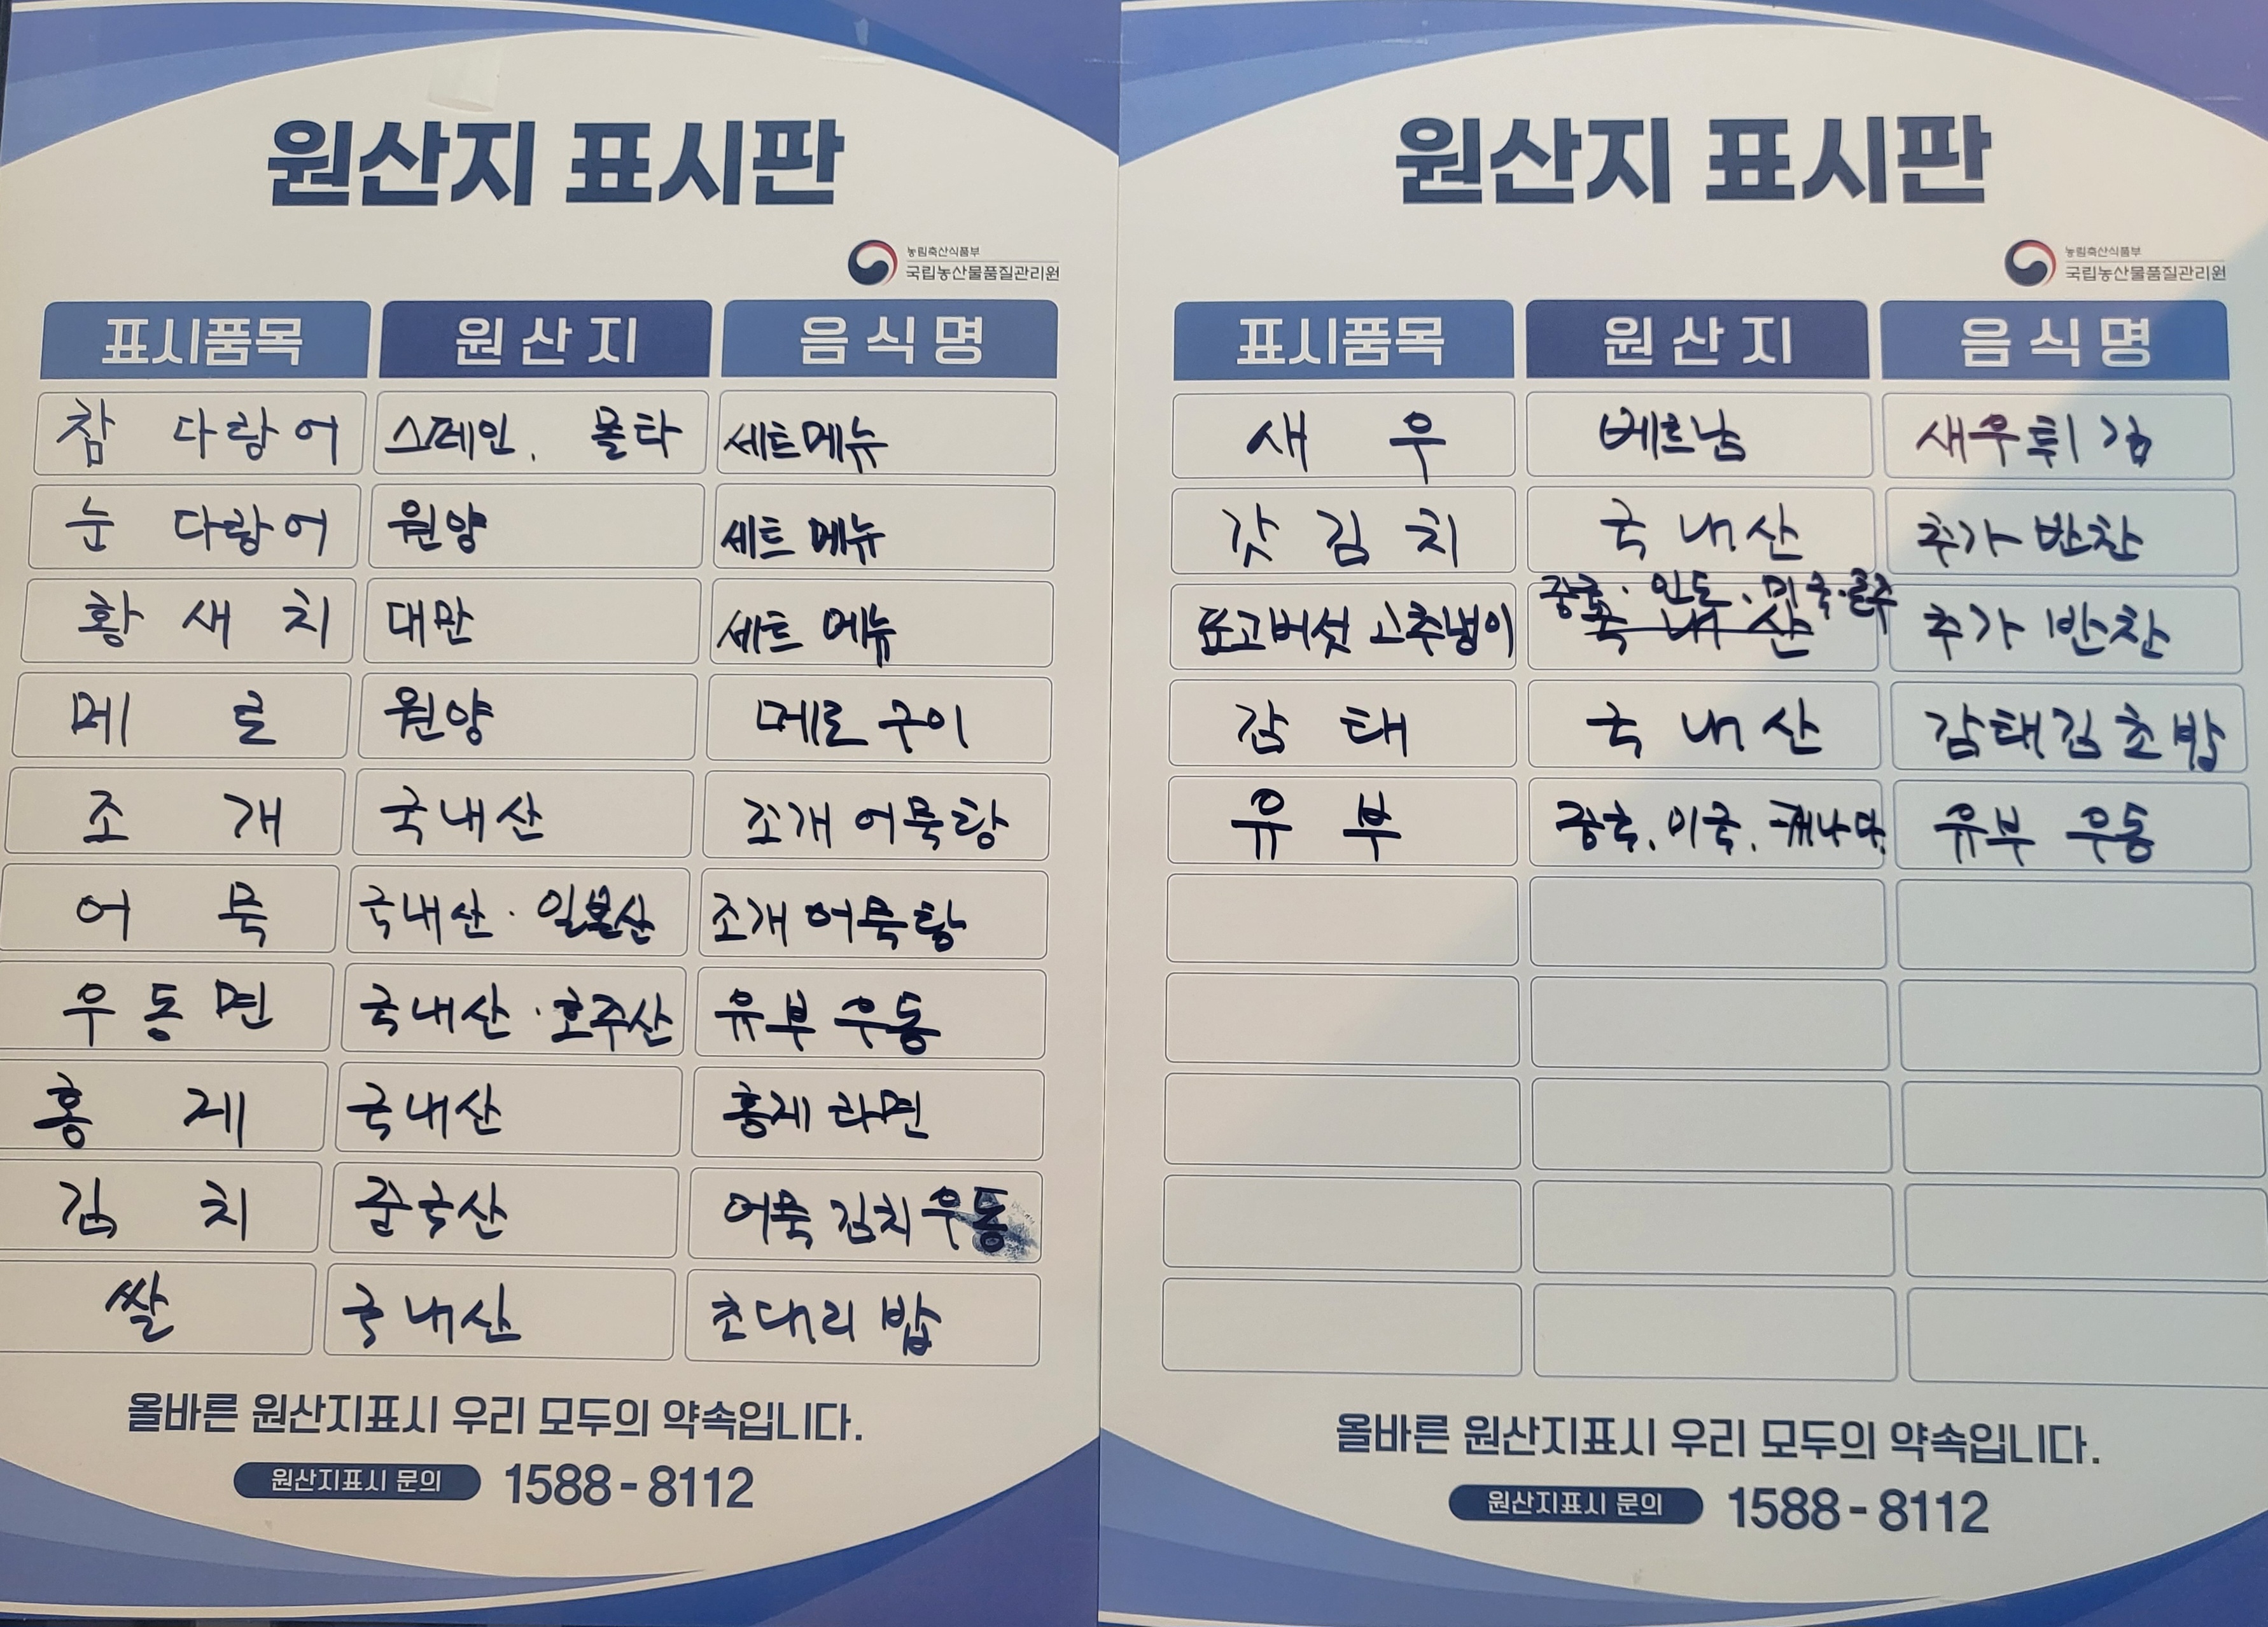 원산지 표시판
농림축산식품부
국립농산물품질관리원
표시품목 원산지 음식명
참 다랑어 스페인. 몰타 세트메뉴
눈 다랑어 원양 세트 메뉴
황새치 대만 세트 메뉴
메로 원양 메로 구이
조개 국내산 조개 어묵탕
어묵 국내산 · 일본산 조개 어묵탕
우동면 국내산 · 호주산 유부 우동
홍게 국내산 홍게 라면
김치 중국산 어묵 김치 우동
쌀 국내산 초대리 밥
올바른 원산지표시 우리 모두의 약속입니다.
원산지표시 문의 1588-8112
원산지 표시판
농림축산식품부
국립농산물품질관리원
표시품목 원산지 음식명
새우 베트남 새우튀김
갓김치 국내산 추가 반찬
중국 · 인도 · 미국 · 호주
표고버섯 고추냉이 국내산 추가 반찬
감태 국내산 감태김초밥
유부 중국. 미국. 캐나다. 유부 우동
올바른 원산지표시 우리 모두의 약속입니다.
원산지표시 문의 1588-8112